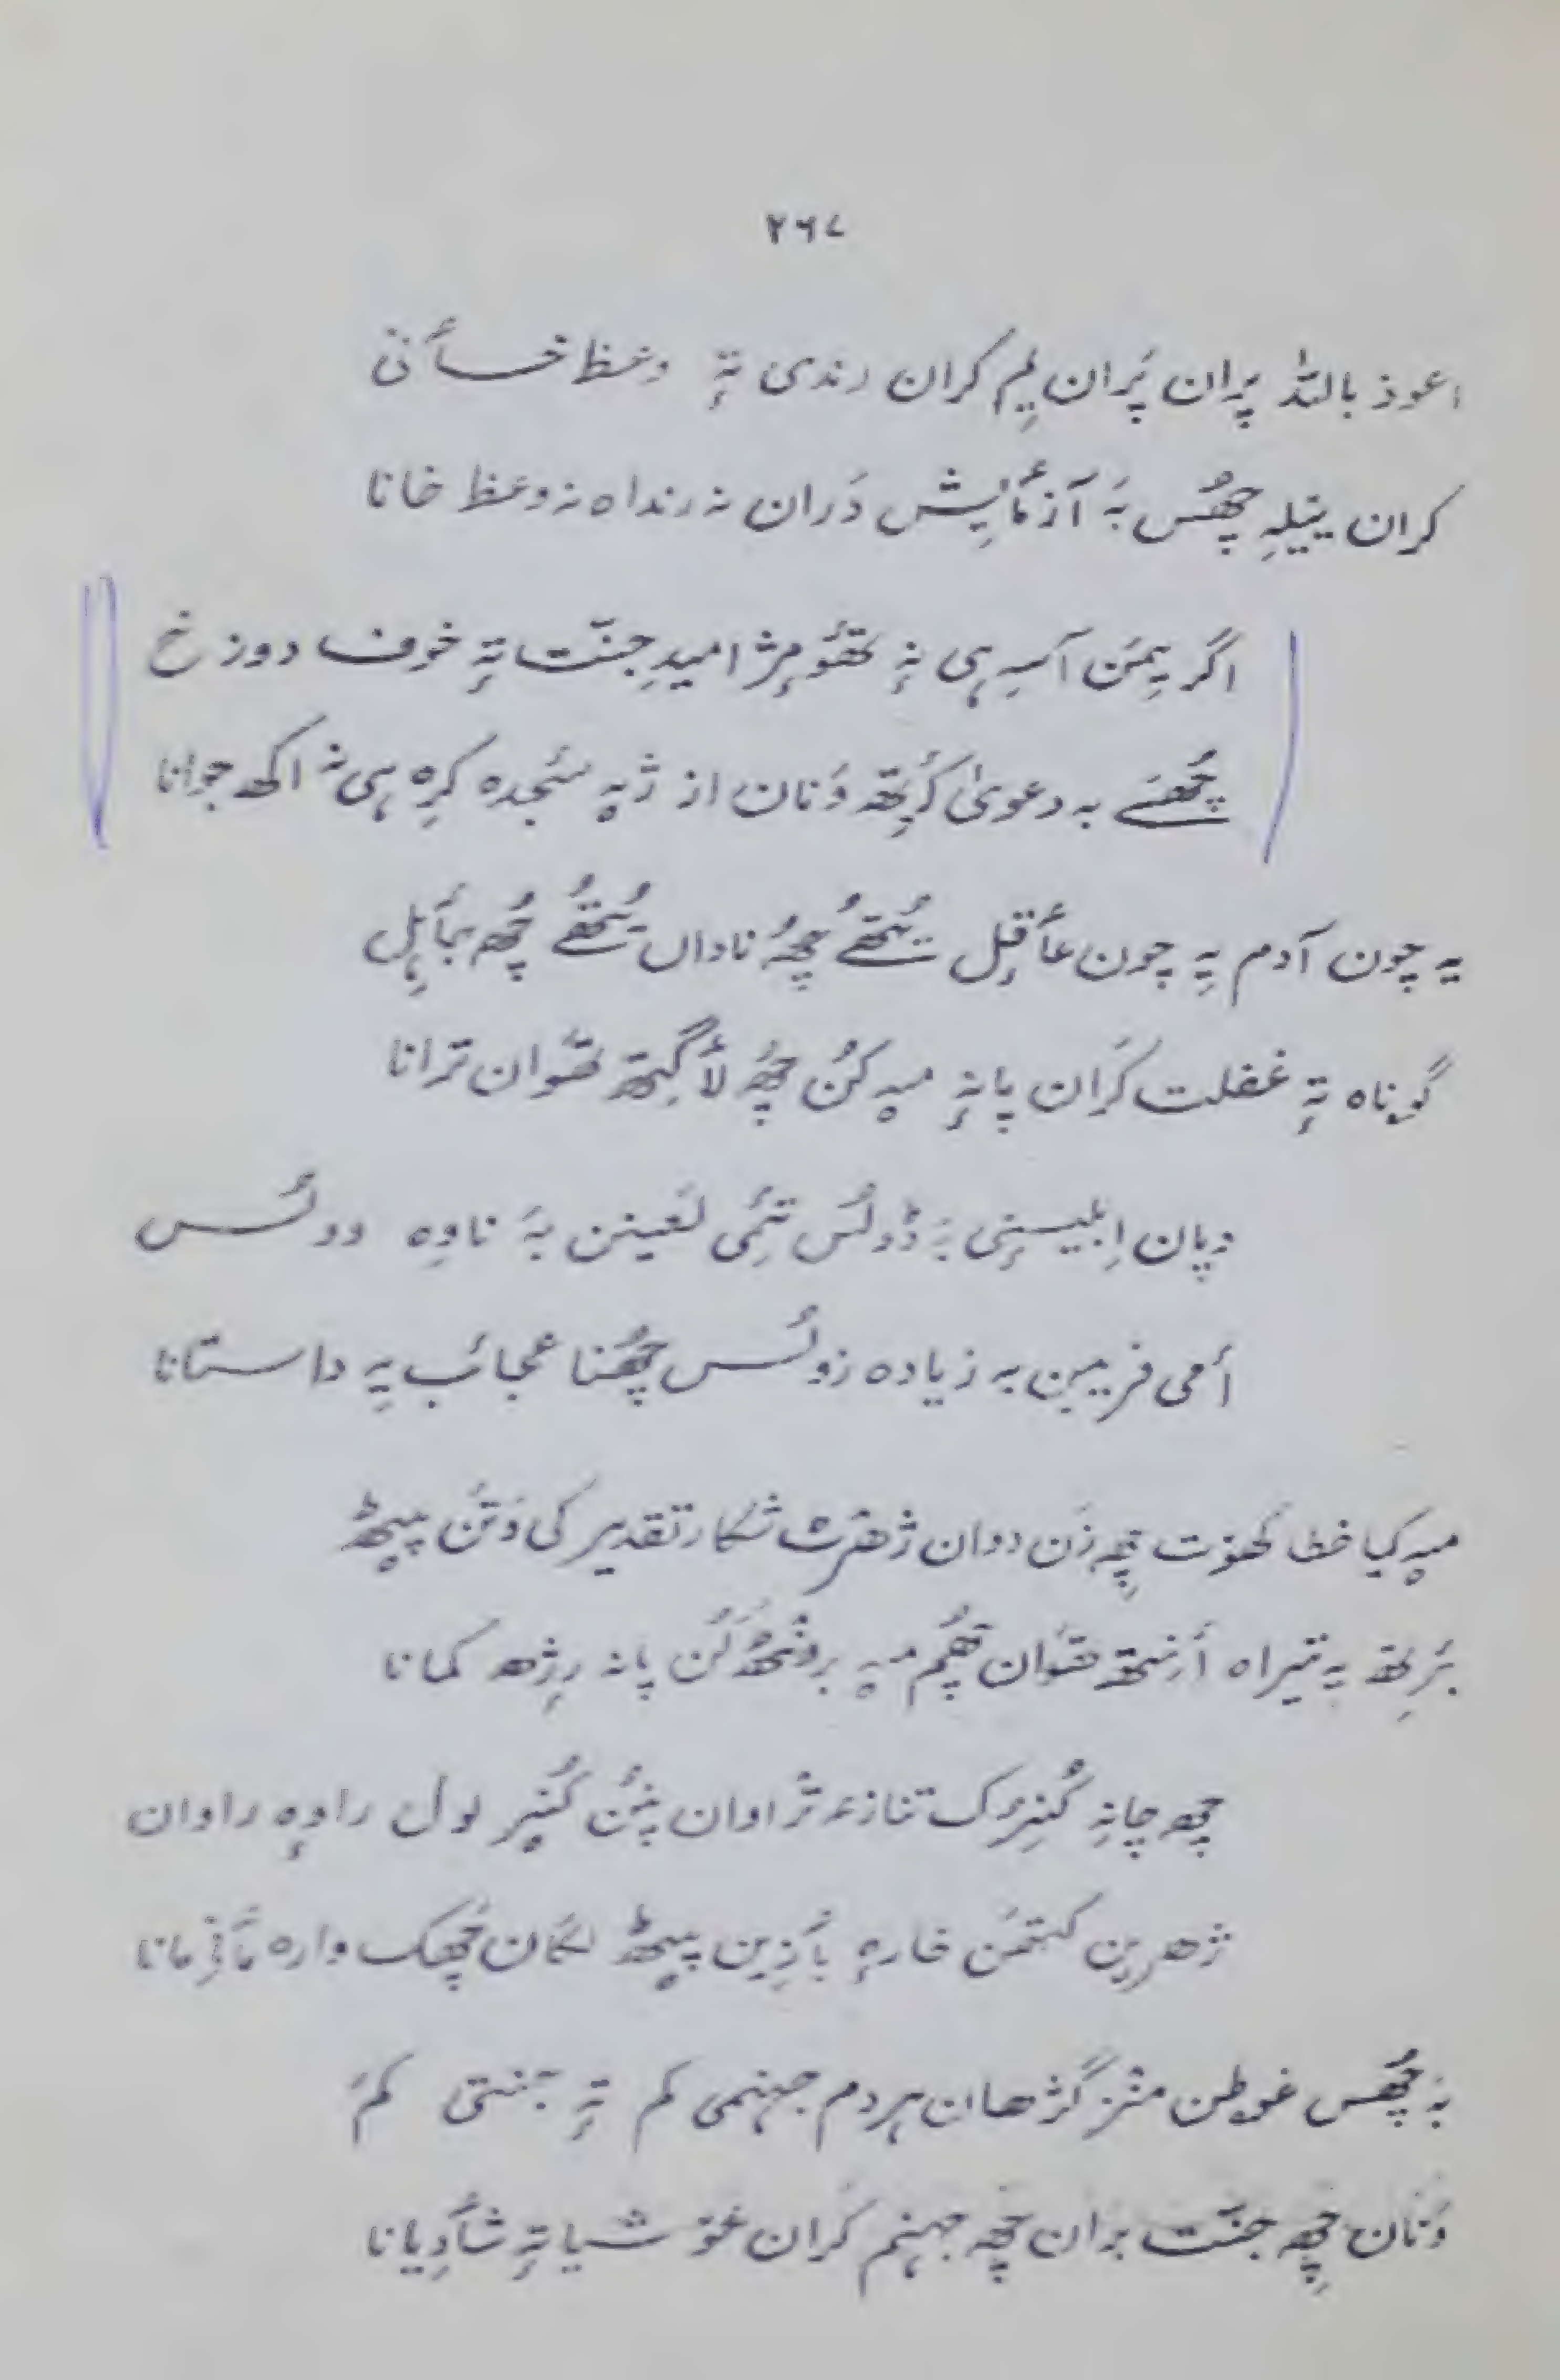 ۲۶۷
اعوذ باللہ پران پَران یِم کران رندی تہٕ وعظ خأنی
کران ییلہِ چھُس بہَ آزمأیِش دَران نہ رنداہ نہ وعظ خانا
اگر یِمَن آسہِ ہی نہٕ تھوٚومژٕ امیدِ جنّت تہٕ خوف دوزخ
چھُسَے بہ دعویٰ کٔرِتھ وَنان از ژیہ سٔجدہ کرِہ ہی نہ اکھ جوانا
یہ چون آدم یہِ چون عأقِل یُتھُے چھُ ناداں یُتھُے چھُ جأہِل
گوناہ تہٕ غفلت کَران پانہٕ میہ کُن چھُ لأگِتھ تھوان ترانا
دپان اِبلیسٕنی بہَ ڈولُس تٔمی لعینن بہَ ناوِہ وولُس
أمی فریبن بہ زیادہ زولُس چھُنا عجائب یہِ داستانا
میہ کیا خطا کھوت چھِ زَن دوان ژھرٹ شکار تقدیر کی وَتَن پیٹھ
بَرِتھ یہ تیراہ أنِتھ تھوان چھُم میہ برونٹھ کُن پانہ رِژھ کمانا
چھِ چانہِ کُنِرک تنازعہ تراوان پنُن کُنیر لول راوِہ راوان
ژھرین کتھَن خارہٕ بأزِین پیٹھ لگان چھِک وارہ مأفِمانا
بہَ چھُس غوطن منز گژھان ہردم جہنمی کم تہٕ جنتی کم
وَنان چھِ جنّت بران چھِ جہنم کران خوشیا تہٕ شأدِیانا